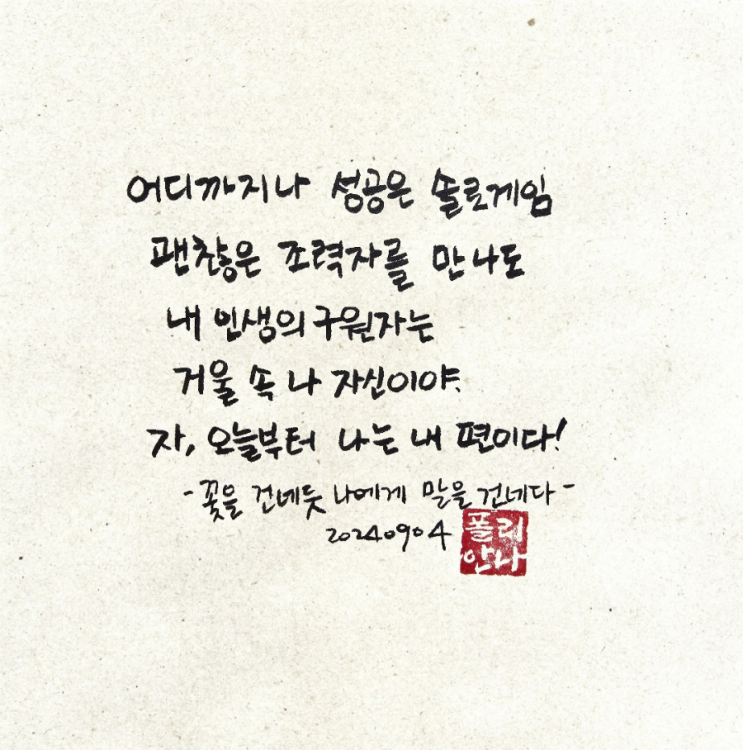 어디까지나 성공은 솔로게임
괜찮은 조력자를 만나도
내 인생의 구원자는
거울 속 나 자신이야.
자, 오늘부터 나는 내 편이다!
-꽃을 건네듯 나에게 말을 건네다-
20240904
폴리
안나